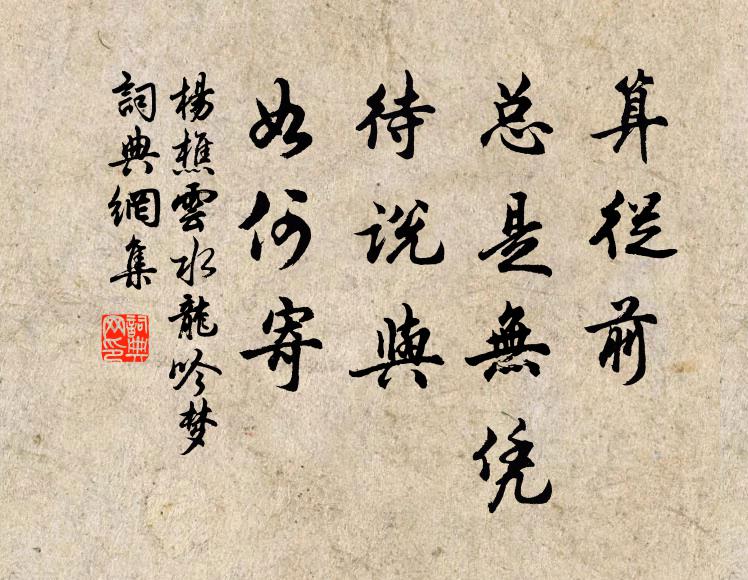 算從前
总是無凭
待説與
如何寄
楊樵雲水龍吟梦
詞典網集
詞典网印